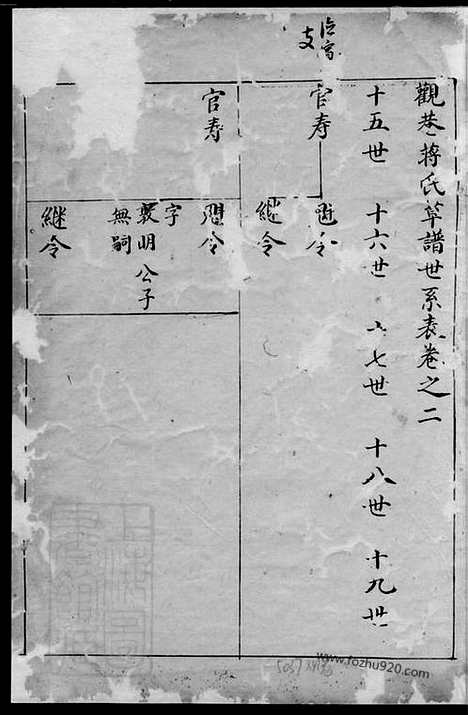 支
觀巷蔣氏草譜世系表卷之二
十五世 十六世 十七世 十八世 十九世
官寿
继令
官寿
字
襄明公子
無嗣
继令
www.fozhu920.com